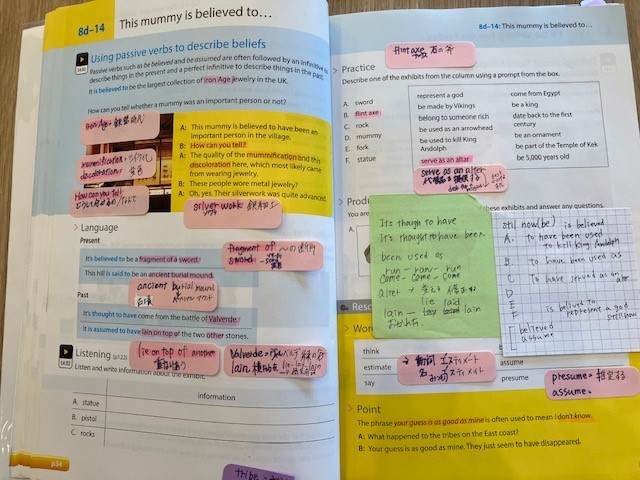 8d–14 This mummy is believed to…
Using passive verbs to describe beliefs
Passive verbs such as be believed and be assumed are often followed by an infinitive to
describe things in the present and a perfect infinitive to describe things in the past.
It is believed to be the largest collection of Iron Age jewelry in the UK.
How can you tell whether a mummy was an important person or not?
Iron Age
mummification
discoloration
変色
How can you tell
A: This mummy is believed to have been an
important person in the village.
B: How can you tell?
A: The quality of the mummification and this
discoloration here, which most likely came
from wearing jewelry.
B: These people wore metal jewelry?
A: Oh, yes. Their silverwork was quite advanced.
silver work
Language
Present
It's believed to be a fragment of a sword.
This hill is said to be an ancient burial mound.
fragment of
sword
ancient burial mound
Past
It's thought to have come from the battle of Valverde.
It is assumed to have lain on top of the two other stones.
lie on top of another
Valverde
lain
Listening (p122)
Listen and write information about the exhibit.
information
A. statue
B. pistol
C. rocks
p34
tribe
8d–14: This mummy is believed to…
flint axe 石の斧
Practice
Describe one of the exhibits from the column using a prompt from the box.
A. sword
B. flint axe
C. rock
D. mummy
E. fork
F. statue
represent a god
be made by Vikings
belong to someone rich
be used as an arrowhead
be used to kill King
Andolph
serve as an altar
come from Egypt
be a king
date back to the first
century
be an ornament
be part of the Temple of Kek
be 5,000 years old
serve as an alter
these exhibits and answer any questions.
A.
It's though to have
It's thought to have been
been used as
run - ran - run
come - came - come
alter
lie laid
lain
lain
still now(be) is believed
A. to have been used
to kill King Andolph
B to have been used as
C To have served as an alter
D
E
F is believed to
represent a god
still now
believed
assume
think
estimate
say
assume
presume
presume = 推定する
assume.
Point
The phrase your guess is as good as mine is often used to mean I don't know.
A: What happened to the tribes on the East coast?
B: Your guess is as good as mine. They just seem to have disappeared.